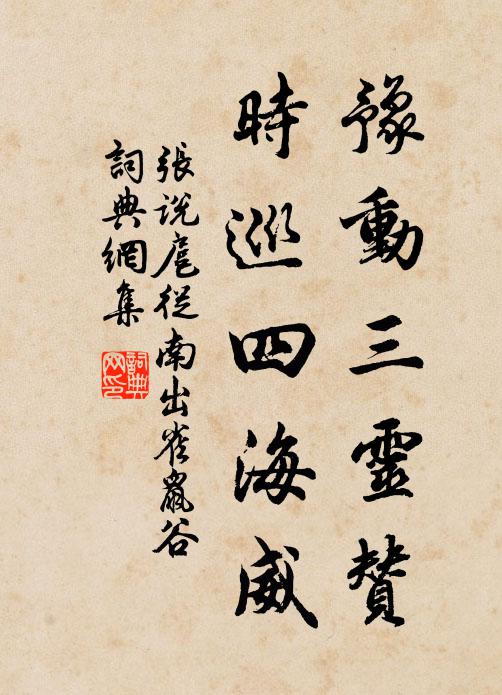 豫動三靈贊
時巡四海威
張說扈從南出雀鼠谷
詞典網集
詞典
网印